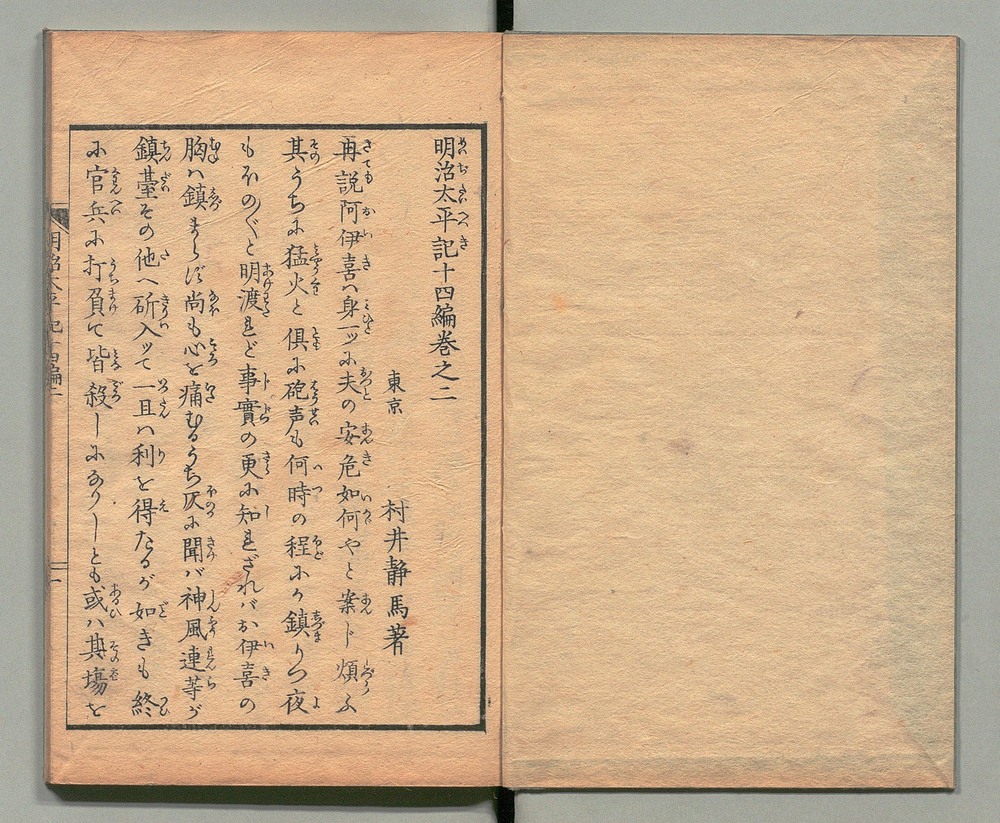 明治太平記十四編巻之二
東京
村井静馬著
再説阿伊喜ハ身一ッに夫の安危如何やと案じ煩ふ
其うちに猛火と倶に砲声も何時の程にか鎮りつ夜
もほの〴〵と明渡れど事實の更に知れざればお伊喜の
胸ハ鎮まらず尚も心を痛むるうち仄に聞バ神風連等が
鎮臺その他へ斫入ッて一旦ハ利を得たるが如きも終
に官兵に打負て皆殺しになりしとも或ハ其場を
明治太平記十四編二
一